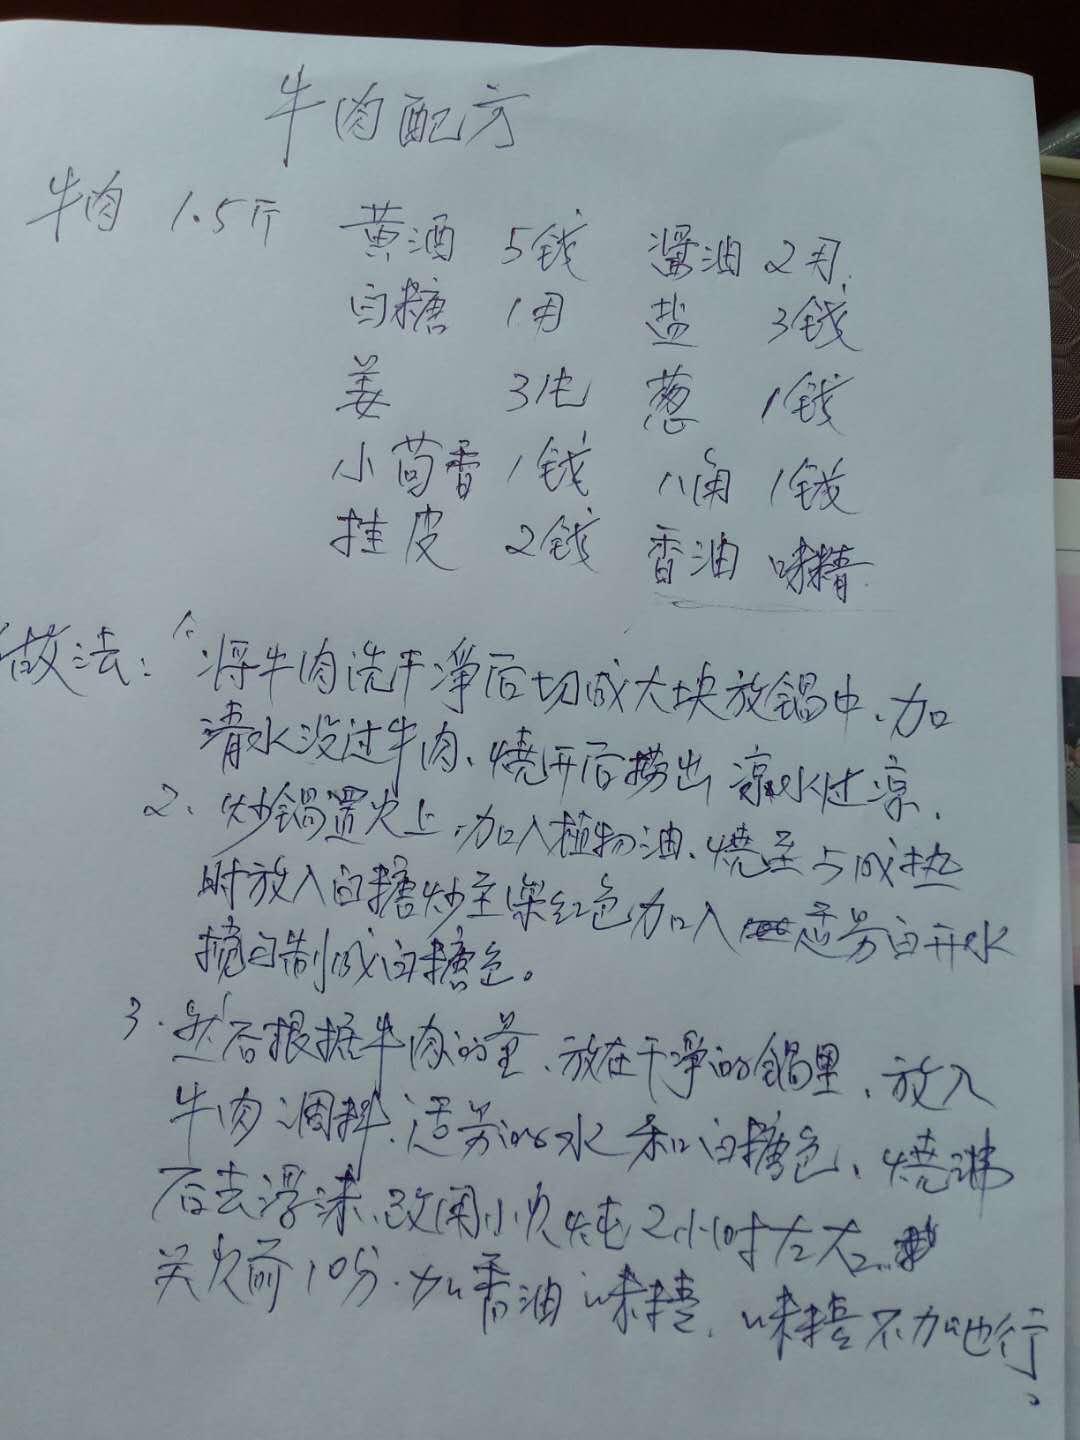 牛肉配方
牛肉 1.5斤 黄酒 5钱 酱油 2两
白糖 1两 盐 3钱
姜 3钱 葱 1钱
小茴香 1钱 八角 1钱
挂皮 2钱 香油 味精
做法: 1、将牛肉洗干净后切成大块放锅中、加
清水没过牛肉、烧开后捞出凉水过凉、
2、炒锅置火上、加入植物油、烧至5成热
时放入白糖炒至枣红色加入适量白开水
搅匀制成白糖色。
3、然后根据牛肉的量、放在干净的锅里、放入
牛肉调料、适量的水和白糖色、烧沸
后去浮沫、改用小火炖2小时左右
关火前10分、加香油味精、味精不加也行。